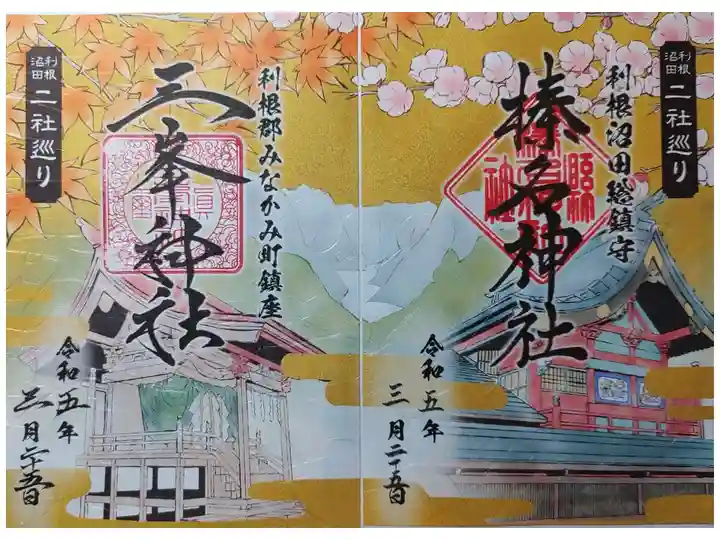 利根沼田
二社巡り
利根沼田総鎮守
榛名神社
令和五年
三月二十五日
利根沼田
二社巡り
利根郡みなかみ町鎮座
三峯神社
令和五年
三月二十五日